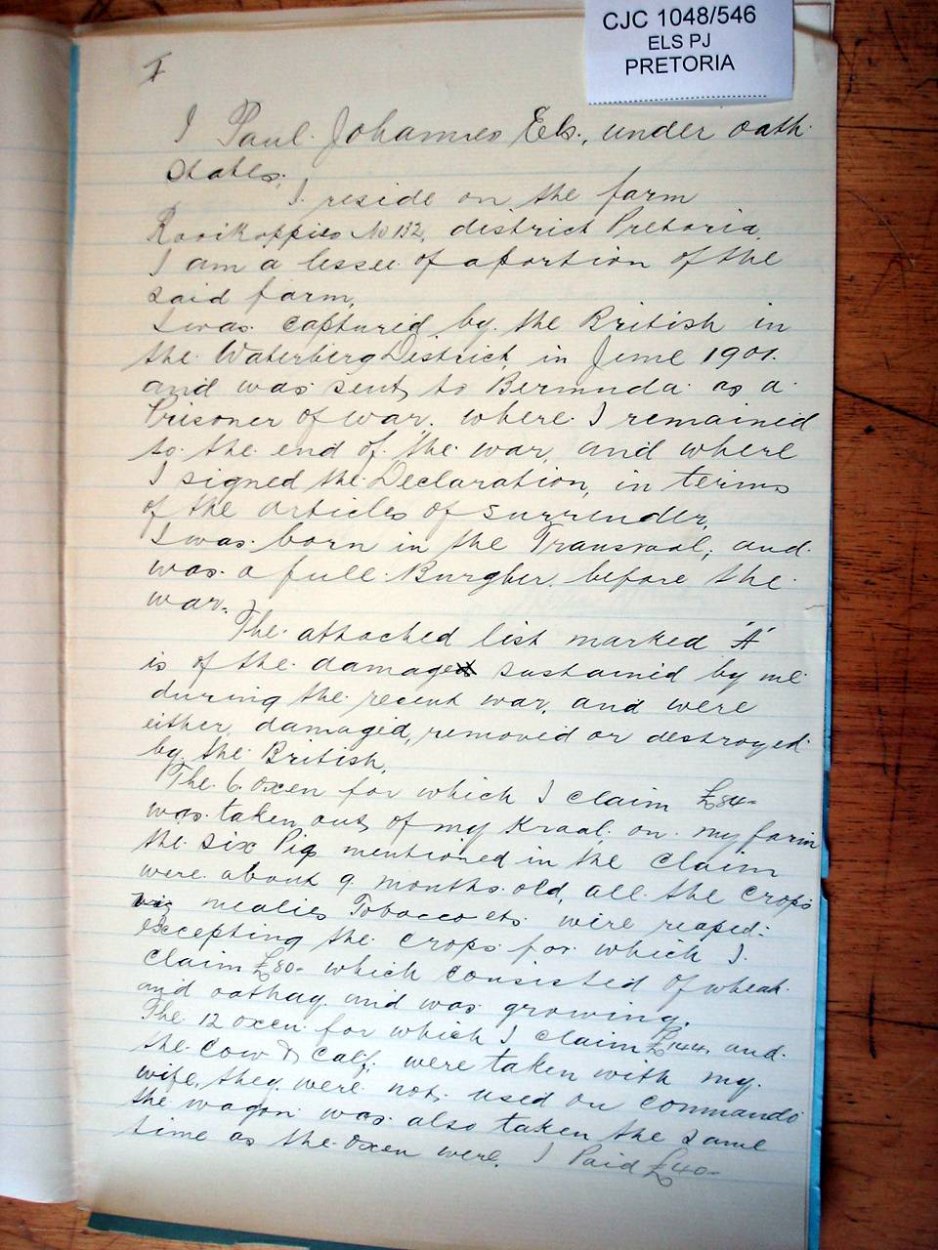 CJC 1048/546
ELS PJ
PRETORIA
I
I Paul Johannes Els., under oath
states;
I reside on the farm
Rooikoppies No 132, district Pretoria
I am a lessee of a portion of the
said farm.
I was captured by the British in
the Waterberg District, in June 1901.
and was sent to Bermuda as a
Prisoner of war, where I remained
to the end of the war, and where
I signed the Declaration, in terms
of the articles of surrender.
I was born in the Transvaal, and
was a full Burgher, before the
war.
The attached list marked "A"
is of the damages sustained by me
during the recent war, and were
either, damaged, removed or destroyed
by the British.
The 6 oxen for which I claim £84-
was taken out of my Kraal, on my farm
the six Pigs mentioned in the claim
were about 9 months old, all the crops
viz mealies Tobacco etc were reaped
excepting the crops for which I
claim £80- which consisted of wheat
and oathay and was growing.
The 12 oxen for which I claim £144, and
the cow & calf, were taken with my
wife, they were not used on commando
the wagon was also taken the same
time as the oxen were. I Paid £40-